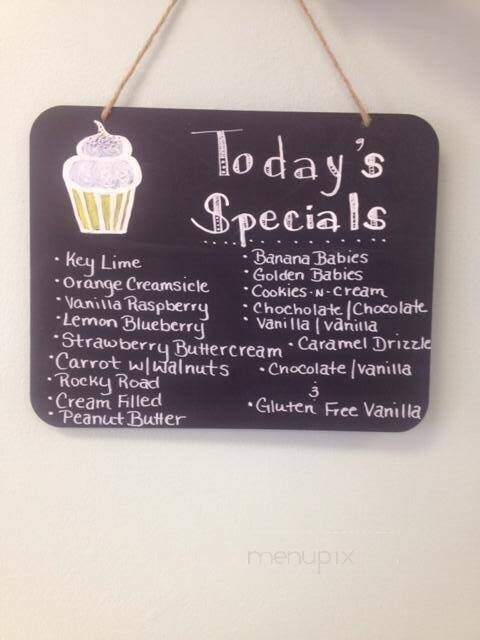 Today's
Specials
• Key Lime
• Orange Creamsicle
• Vanilla Raspberry
• Lemon Blueberry
• Strawberry Buttercream
• Carrot w/walnuts
• Rocky Road
• Cream Filled
• Peanut Butter
• Banana Babies
• Golden Babies
• Cookies-N-Cream
• Chocholate/Chocolate
• Vanilla/vanilla
• Caramel Drizzle
• Chocolate/vanilla
&
• Gluten Free Vanilla
menupix